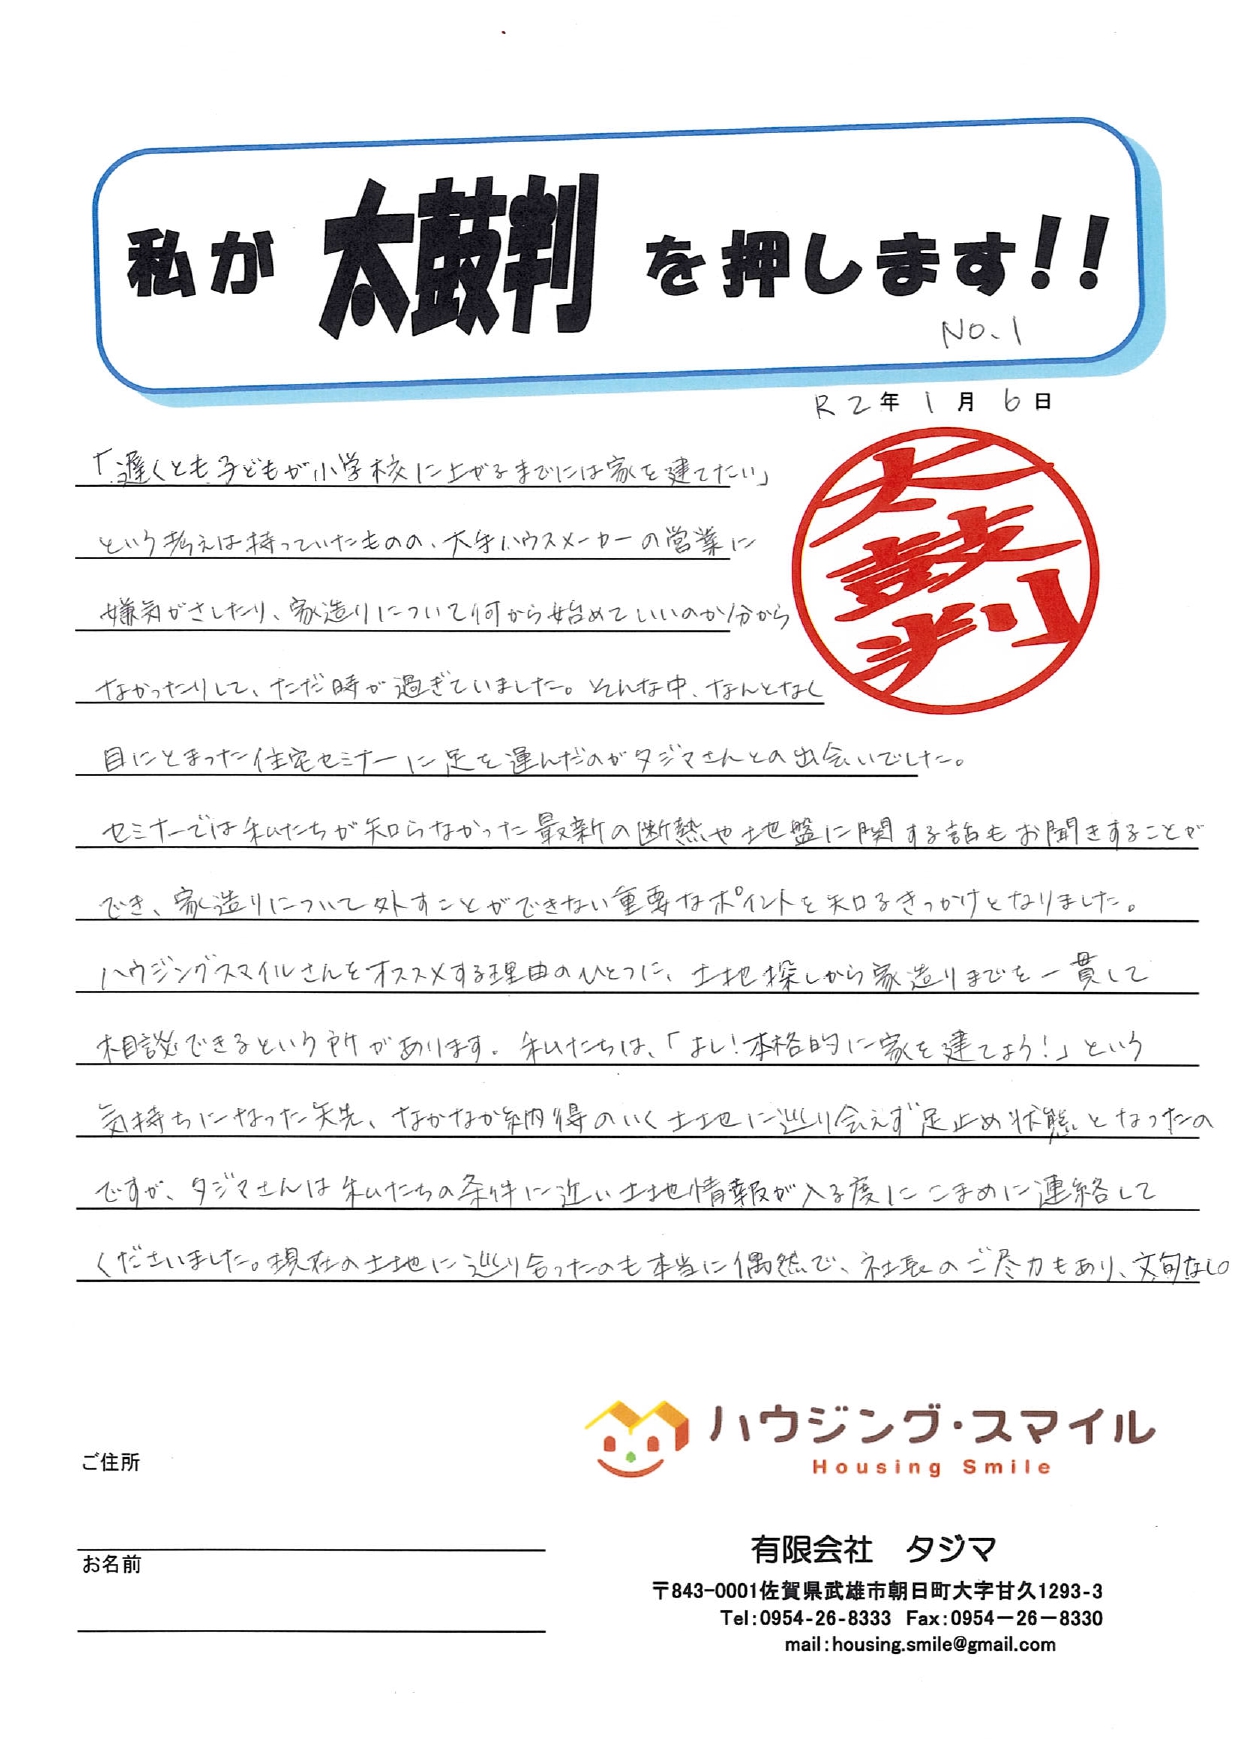 私が 太鼓判 を押します!!
No.1
R2年 1月 6日
太鼓判
「遅くとも子どもが小学校に上がるまでには家を建てたい」
という考えは持っていたものの、大手ハウスメーカーの営業に
嫌気がさしたり、家造りについて何から始めていいのか分から
なかったりして、ただ時が過ぎていました。そんな中、なんとなく
目にとまった住宅セミナーに足を運んだのがタジマさんとの出会いでした。
セミナーでは私たちが知らなかった最新の断熱や地盤に関する話もお聞きすることが
でき、家造りについて外すことができない重要なポイントを知るきっかけとなりました。
ハウジングスマイルさんをオススメする理由のひとつに、土地探しから家造りまでを一貫して
相談できるという所があります。私たちは、「よし!本格的に家を建てよう!」という
気持ちになった矢先、なかなか納得のいく土地に巡り会えず足止め状態となったの
ですが、タジマさんは私たちの条件に近い土地情報が入る度にこまめに連絡して
くださいました。現在の土地に巡り合ったのも本当に偶然で、社長のご尽力もあり、文句なしの
ハウジング・スマイル
Housing Smile
ご住所
お名前
有限会社 タジマ
〒843-0001佐賀県武雄市朝日町大字甘久1293-3
Tel:0954-26-8333 Fax:0954－26－8330
mail:housing.smile@gmail.com